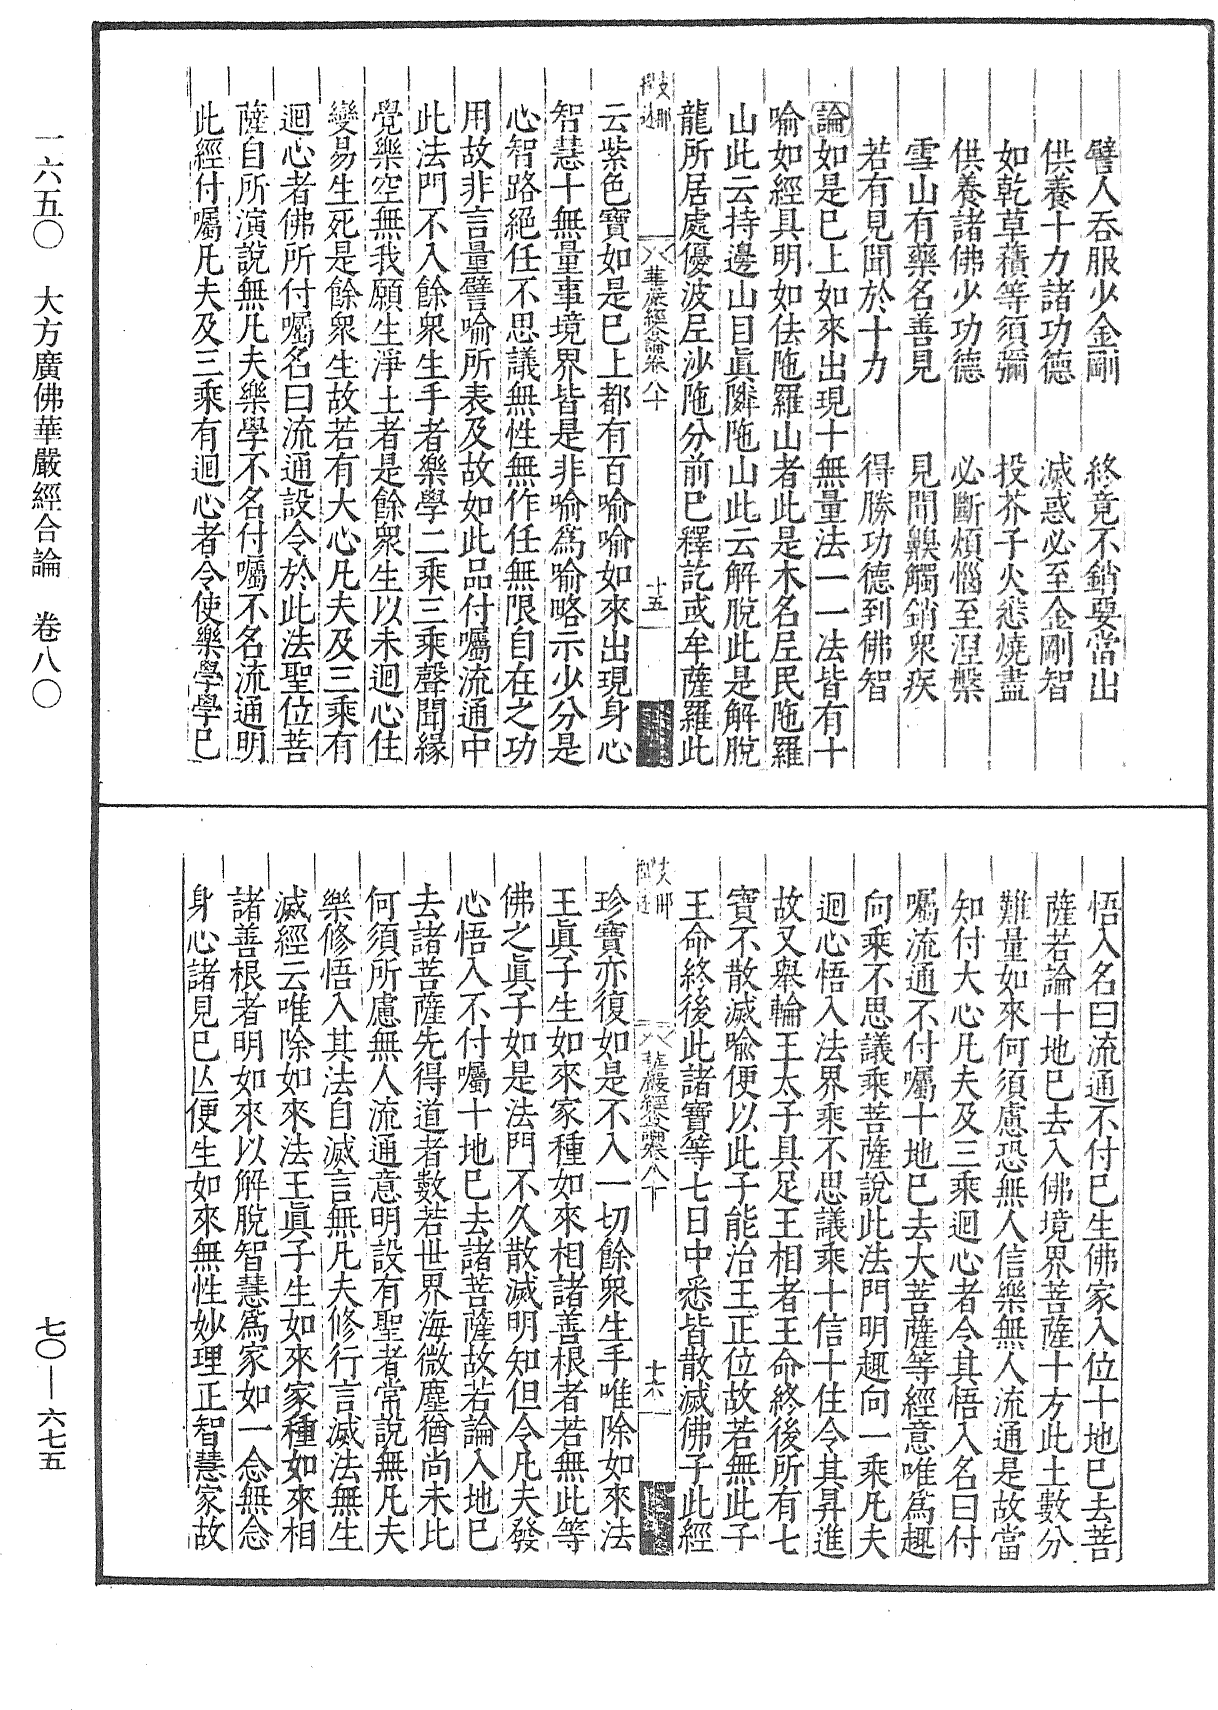 譬人吞服少金剛　終竟不銷要當出
供養十力諸功德　滅惑必至金剛智
如乾草𧂐等須彌　投芥子火悉燒盡
供養諸佛少功德　必斷煩惱至涅槃
雪山有藥名善見　見聞齅觸銷衆疾
若有見聞於十力　得勝功德到佛智
論如是已上如來出現十無量法一一法皆有十
喻如經具明如佉陁羅山者此是木名尼民陁羅
山此云持邊山目眞隣陁山此云解脫此是解脫
龍所居處優波尼沙陁分前已釋訖或牟薩羅此
支那撰述
華嚴經合論卷八十
十五
云紫色寶如是已上都有百喻喻如來出現身心
智慧十無量事境界皆是非喻爲喻略示少分是
心智路絕任不思議無性無作任無限自在之功
用故非言量譬喻所表及故如此品付囑流通中
此法門不入餘衆生手者樂學二乘三乘聲聞緣
覺樂空無我願生淨土者是餘衆生以未迴心住
變易生死是餘衆生故若有大心凡夫及三乘有
迴心者佛所付囑名曰流通設令於此法聖位菩
薩自所演說無凡夫樂學不名付囑不名流通明
此經付囑凡夫及三乘有迴心者令使樂學學已
悟入名曰流通不付已生佛家入位十地已去菩
薩若論十地已去入佛境界菩薩十方此土數分
難量如來何須慮恐無人信樂無人流通是故當
知付大心凡夫及三乘迴心者令其悟入名曰付
囑流通不付囑十地已去大菩薩等經意唯爲趣
向乘不思議乘菩薩說此法門明趣向一乘凡夫
迴心悟入法界乘不思議乘十信十住令其昇進
故又舉輪王太子具足王相者王命終後所有七
寶不散滅喩便以此子能治王正位故若無此子
王命終後此諸寶等七日中悉皆散滅佛子此經
支那撰述
華嚴經合論卷八十
十六
珍寶亦復如是不入一切餘衆生手唯除如來法
王眞子生如來家種如來相諸善根者若無此等
佛之眞子如是法門不久散滅明知但令凡夫發
心悟入不付囑十地已去諸菩薩故若論入地已
去諸菩薩先得道者數若世界海微塵猶尚未比
何須所慮無人流通意明設有聖者常說無凡夫
樂修悟入其法自滅言無凡夫修行言滅法無生
滅經云唯除如來法王眞子生如來家種如來相
諸善根者明如來以解脫智慧爲家如一念無念
身心諸見已亾便生如來無性妙理正智慧家故
一六五〇　大方廣佛華嚴經合論　卷八〇
七〇—六七五